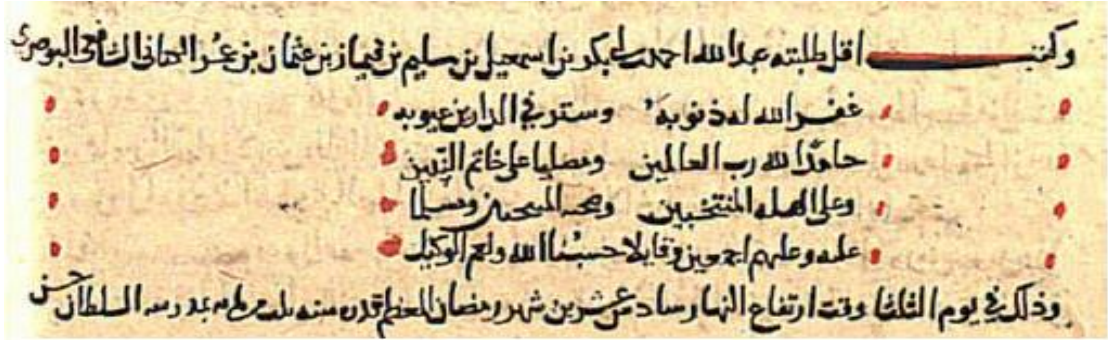 وكتب اقل طلبته عبد الله احمد بن ابي بكر بن اسمعيل بن سليم بن قيماز بن عثمان بن عمر الكنانى الشافعى البوصيرى
غفر الله له ذنوبه وستر في الدارين عيوبه
حامدًا لله رب العالمين ومصليا على خاتم النبيين
وعلى اله المنتخبين وصحبه ومسلما
عليه وعليهم اجمعين وقايلا حسبنا الله ونعم الوكيل
وذلك في يوم الثلثا وقت ارتفاع النهار سادس عشرين شهر رمضان المعظم قدره سنه بمدرسه السلطان حسن